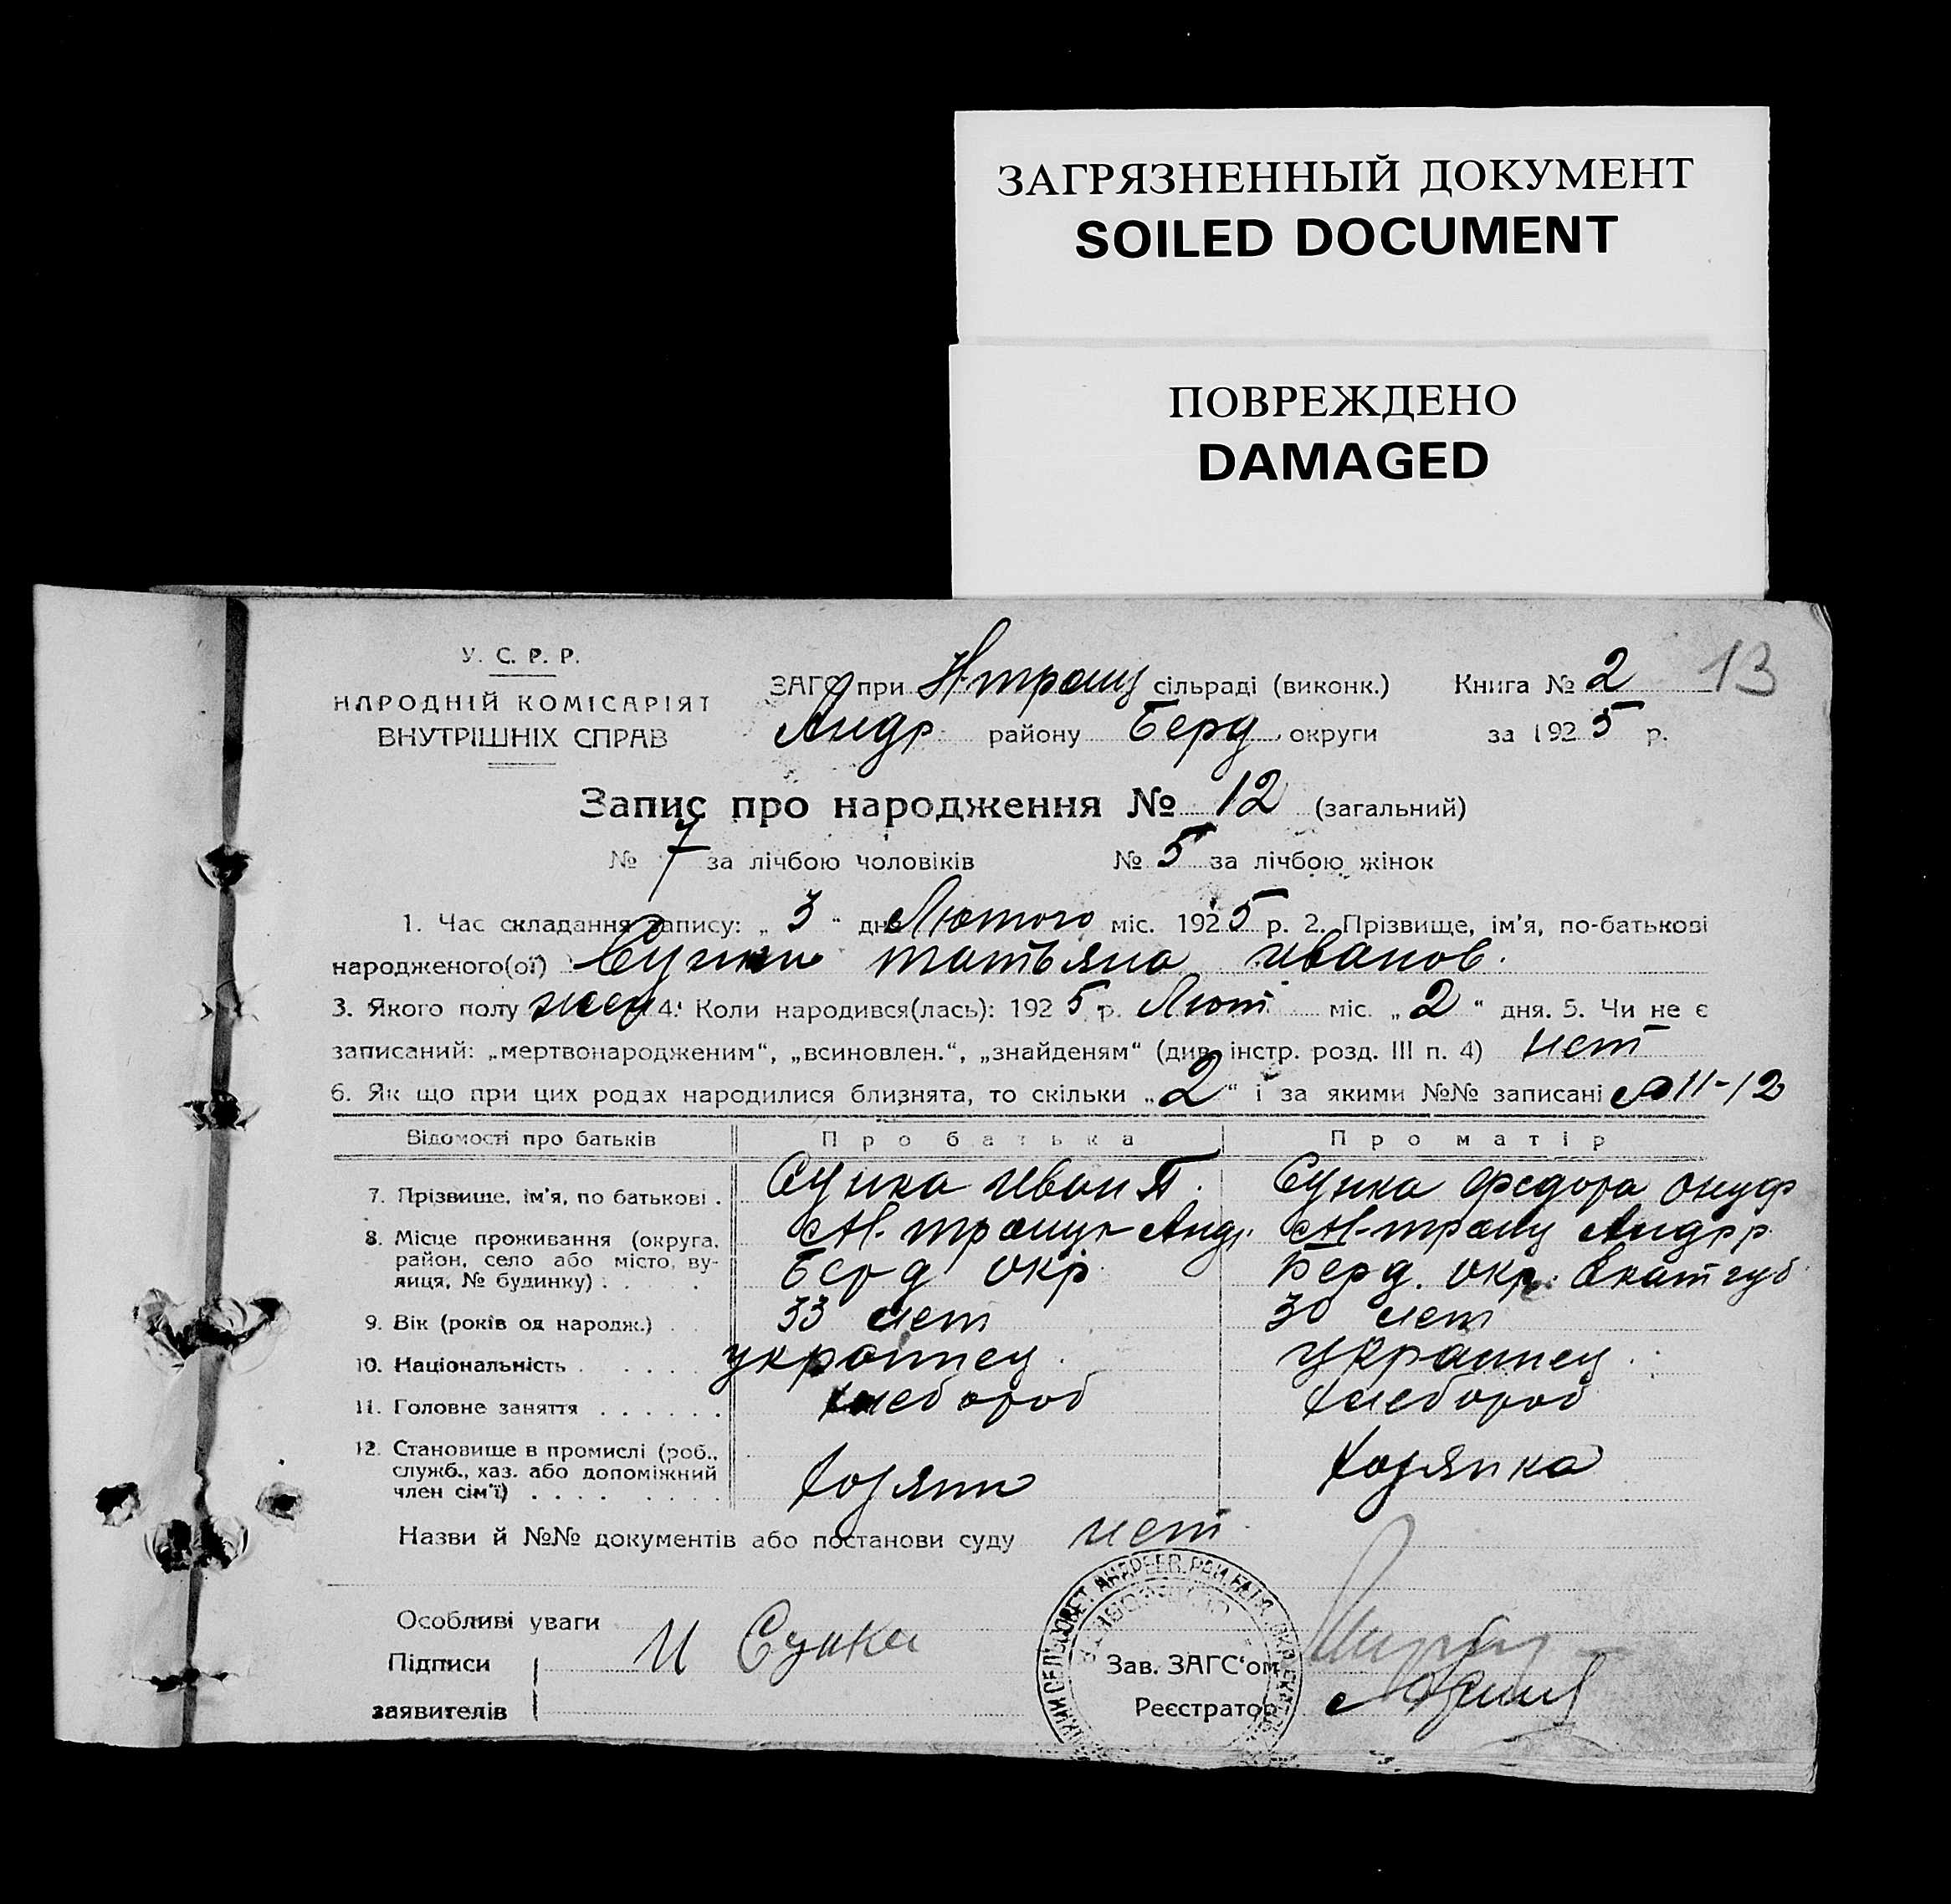 ЗАГРЯЗНЕННЫЙ ДОКУМЕНТ
SOILED DOCUMENT
ПОВРЕЖДЕНО
DAMAGED
13
У. С. Р. Р.
НАРОДНІЙ КОМІСАРІЯТ
ВНУТРІШНІХ СПРАВ
ЗАГС при Н-троиц сільраді (виконк.) Книга № 2
Андр району Берд округи за 1925 р.
Запис про народження № 12 (загальний)
№ 7 за лічбою чоловіків № 5 за лічбою жінок
1. Час складання запису: „ 3 " дня Лютого міс. 1925 р. 2. Прізвище, ім'я, по-батькові
народженого(ої) татьяна иванов.
3. Якого полу жен 4. Коли народився(лась): 1925 р. Лют міс. „ 2 " дня. 5. Чи не є
записаний: „мертвонародженим", „всиновлен.", „знайденям" (див. інстр. розд. III п. 4) нет
6. Як що при цих родах народилися близнята, то скільки „ 2 " і за якими №№ записані 11-12
Відомості про батьків Про батька Про матір
7. Прізвище, ім'я, по батькові . Сушка иван П. Сушка федора онуф
8. Місце проживання (округа, Н-троицк Анд. Н-троиц Андр р
район, село або місто, ву- Берд окр Берд. окр. Екат губ
лиця, № будинку) . . .
9. Вік (років од народж.) 33 лет 30 лет
10. Національність . . . . . украинец украинец
11. Головне заняття . . . . . . хлебороб хлебороб
12. Становище в промислі (роб.,
служб., хаз. або допоміжний хозяин хозянка
член сім'ї) . . . . . . . .
Назви й №№ документів або постанови суду нет
Особливі уваги
Підписи И Сушка Зав. ЗАГС'ом
заявителів Реєстратор
СЕЛЬСОВЕТ АНДРЕЕВ. РАЙ.